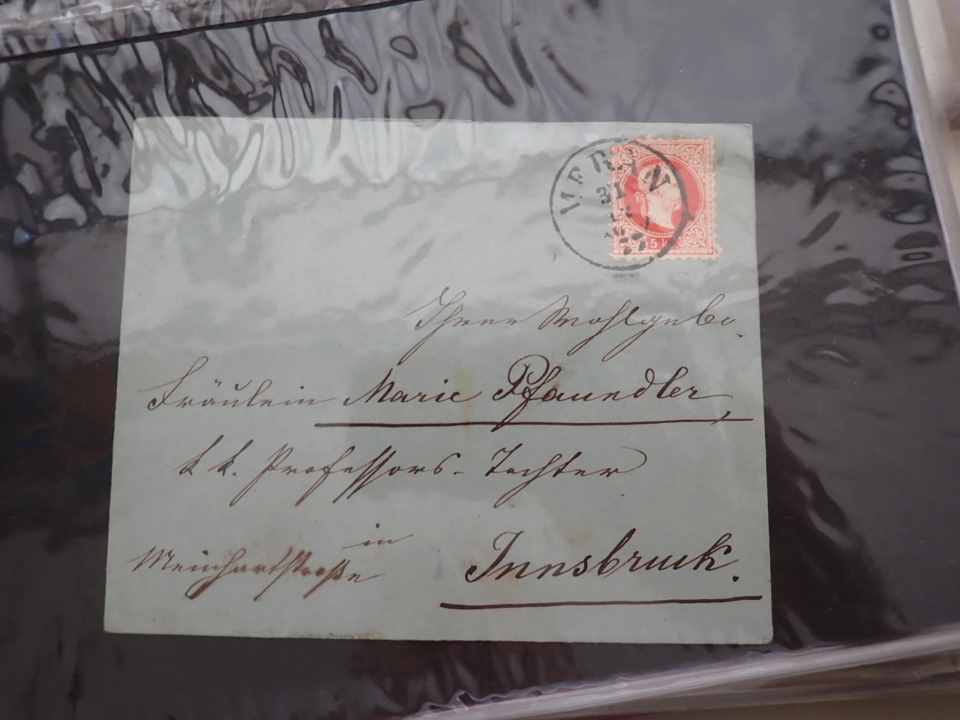 MERAN
31
77
5
Ihrer Wohlgebo.
Fräulein Marie Pfaundler,
k k. Professors-Tochter
in
Meinhartstraße
Innsbruck.